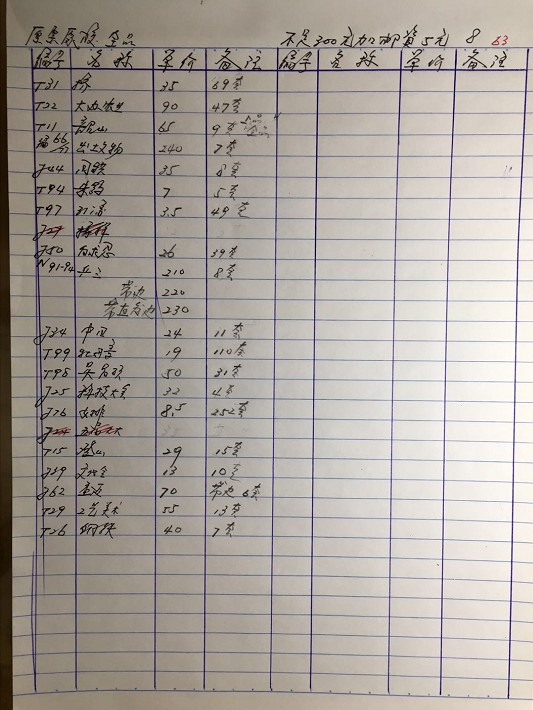 原票原胶 全品 不足300元加邮资5元 8 63
编号 名称 单价 备注 编号 名称 单价 备注
T31 桥 35 69套
T22 大办农业 90 47套
T11 韶山 65 9套
编66 出土文物 240 7套
J44 35 8套
T94 朱鹮 7 5套
T97 3.5 49套
J50 白求恩 26 39套
N91-94 210 8套
带边 220
带直角边 230
J34 中日 24 11套
T99 牡丹亭 19 110套
T98 吴昌硕 50 31套
J25 科技大会 32 4套
J76 女排 8.5 252套
T15 登山 29 15套
J39 文代会 13 10套
J62 70 带边 6套
T29 工艺美术 55 13套
T26 钢铁 40 7套